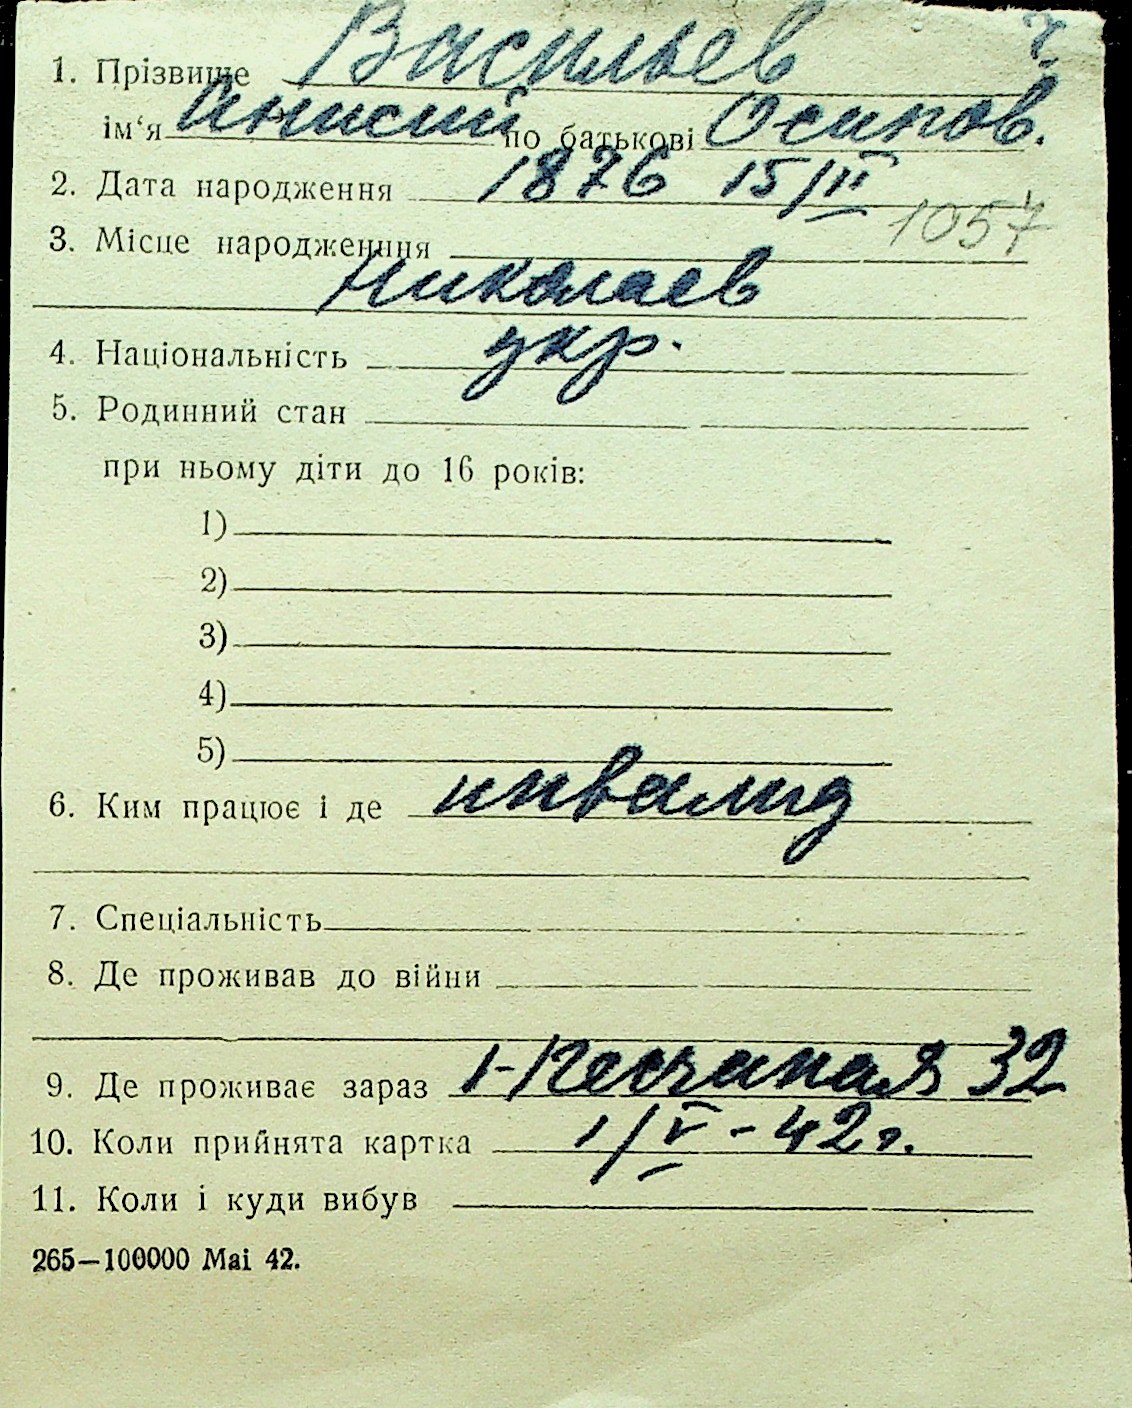 ч.
1. Прізвище Васильев
ім‘я Анисий по батькові Осипов.
2. Дата народження 1876 15/II
1057
3. Місце народження
Николаев
4. Національність укр.
5. Родинний стан
при ньому діти до 16 років:
1)
2)
3)
4)
5)
6. Ким працює і де инвалид
7. Спеціальність
8. Де проживав до війни
9. Де проживає зараз 1-Песчаная 32
10. Коли прийнята картка 1/V-42г.
11. Коли і куди вибув
265—100000 Mai 42.